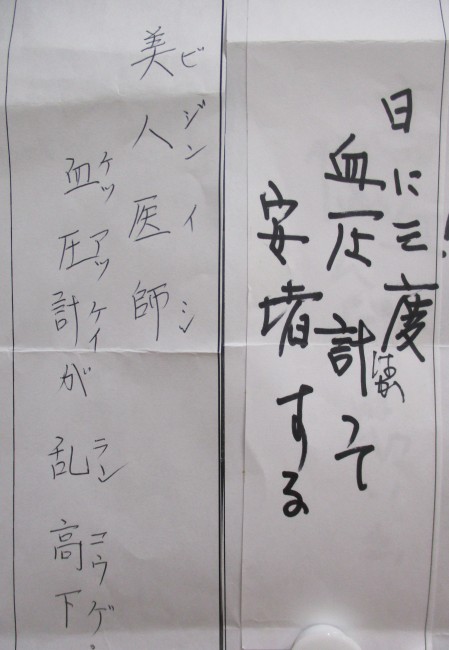 日に三度
血圧計って
はか
安堵する
美人医師
ビジンイシ
血圧計が乱高下
ケツアツケイ ランコウゲ